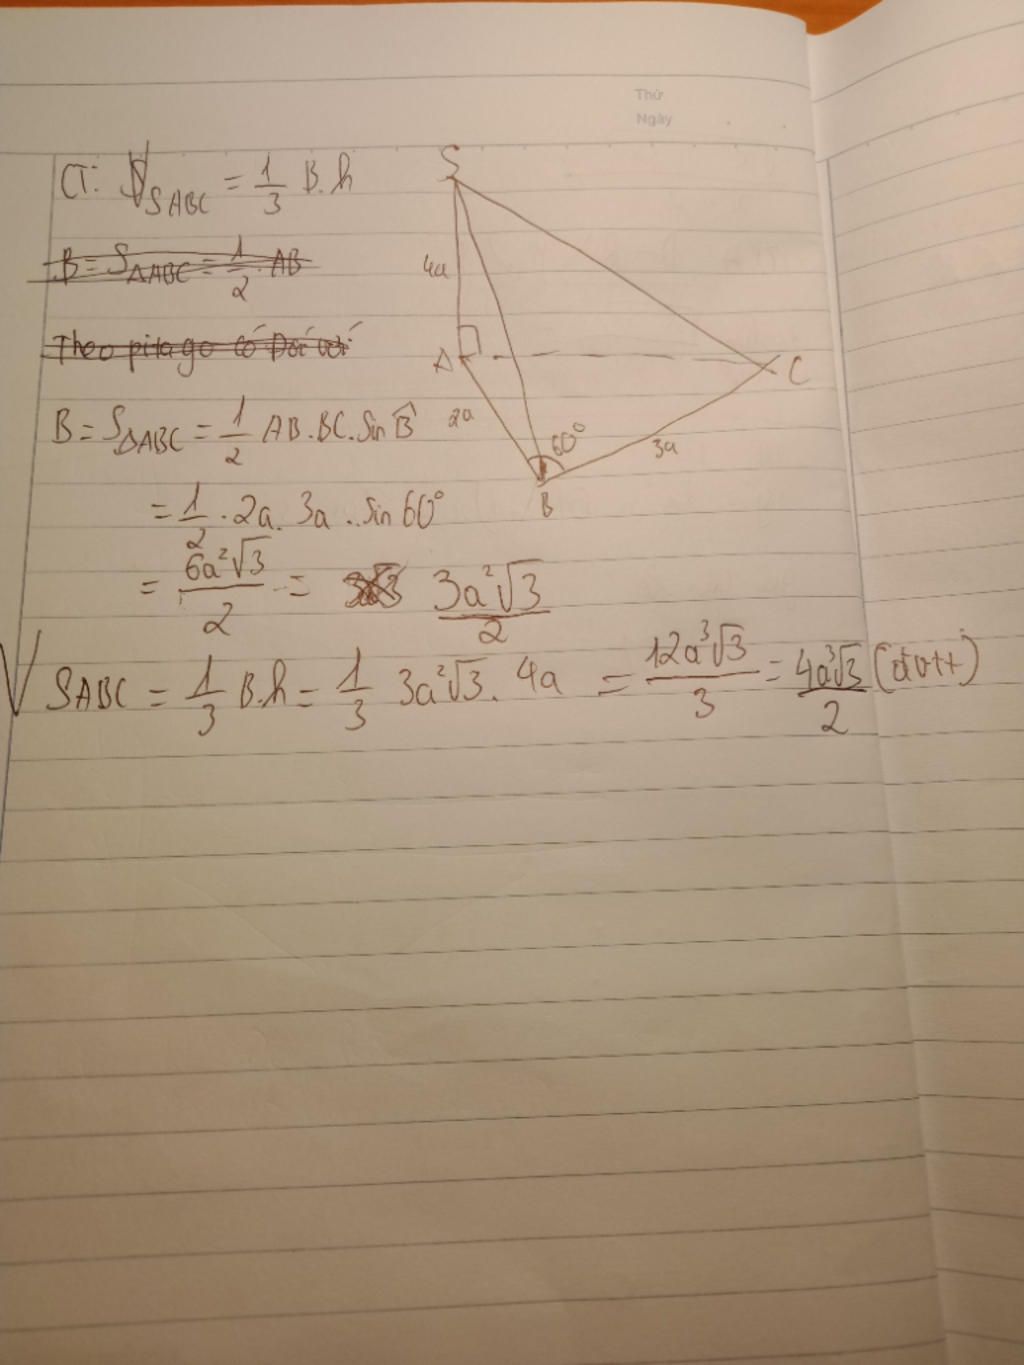 Thứ
Ngày
CT: V_SABC = 1/3 B.h
B = S△ABC = 1/2 . AB
Theo pitago có Đối với
B = S△ABC = 1/2 AB.BC.Sin B̂
= 1/2 . 2a. 3a . Sin 60°
= 6a²√3/2 = 3a²√3/2
V SABC = 1/3 B.h = 1/3 3a²√3. 4a = 12a³√3/3 = 4a³√3/2 (đvtt)
S
4a
A
C
2a
60°
3a
B